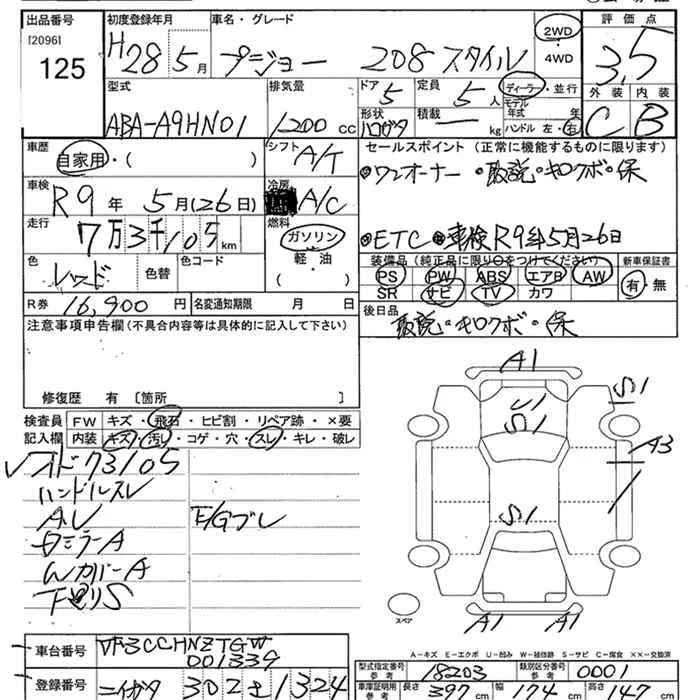 出品番号 初度登録年月 車名・グレード 評価点
[2096]
125
H28 5月 プジョー 208 スタイル
2WD
・
4WD
3.5
型式 排気量 ドア 定員 ディーラー・並行 外装 内装
5 5人 モデル年式 年
ABA-A9HN01 1200cc 形状 積載 ハンドル 左・右 C B
ハコガタ ー kg
車歴 シフト セールスポイント(正常に機能するものに限ります)
自家用・( ) A/T
・ワンオーナー ・取説・キロクボ・保
車検 冷房
R9年 5月(26日) A/C
走行 燃料 ・ETC ・車検R9年5月26日
7万3千105km ガソリン
・
軽・油
( )
装備品(純正品に限り○をつけてください) 新車保証書
色 色替 色コード PS PW ABS エアB AW 有・無
レッド SR サビ TV カワ
R券 16,900円 名変通知期限 月 日 後日品
取説・キロクボ・保
注意事項申告欄(不具合内容等は具体的に記入して下さい)
修復歴 有 〔箇所 〕
検査員 FW キズ・飛石・ヒビ割・リペア跡・×要
記入欄 内装 キズ・汚レ・コゲ・穴・スレ・キレ・破レ
73105
ハンドルスレ
AU E/Gブレ
ミラーA
WカバーA
下廻りS
A1
S1
U1
S1
A3
S1
A1 A1
スペア
A-キズ E-エクボ U-凹み W-補修跡 S-サビ C-腐食 ××-交換済
車台番号 VF3CCHNZTGW
001339
型式指定番号 参考 18203 類別区分番号 参考 0001
登録番号 ニイガタ 302 1324
車庫証明用 参考 長さ 397cm 幅 174cm 高さ